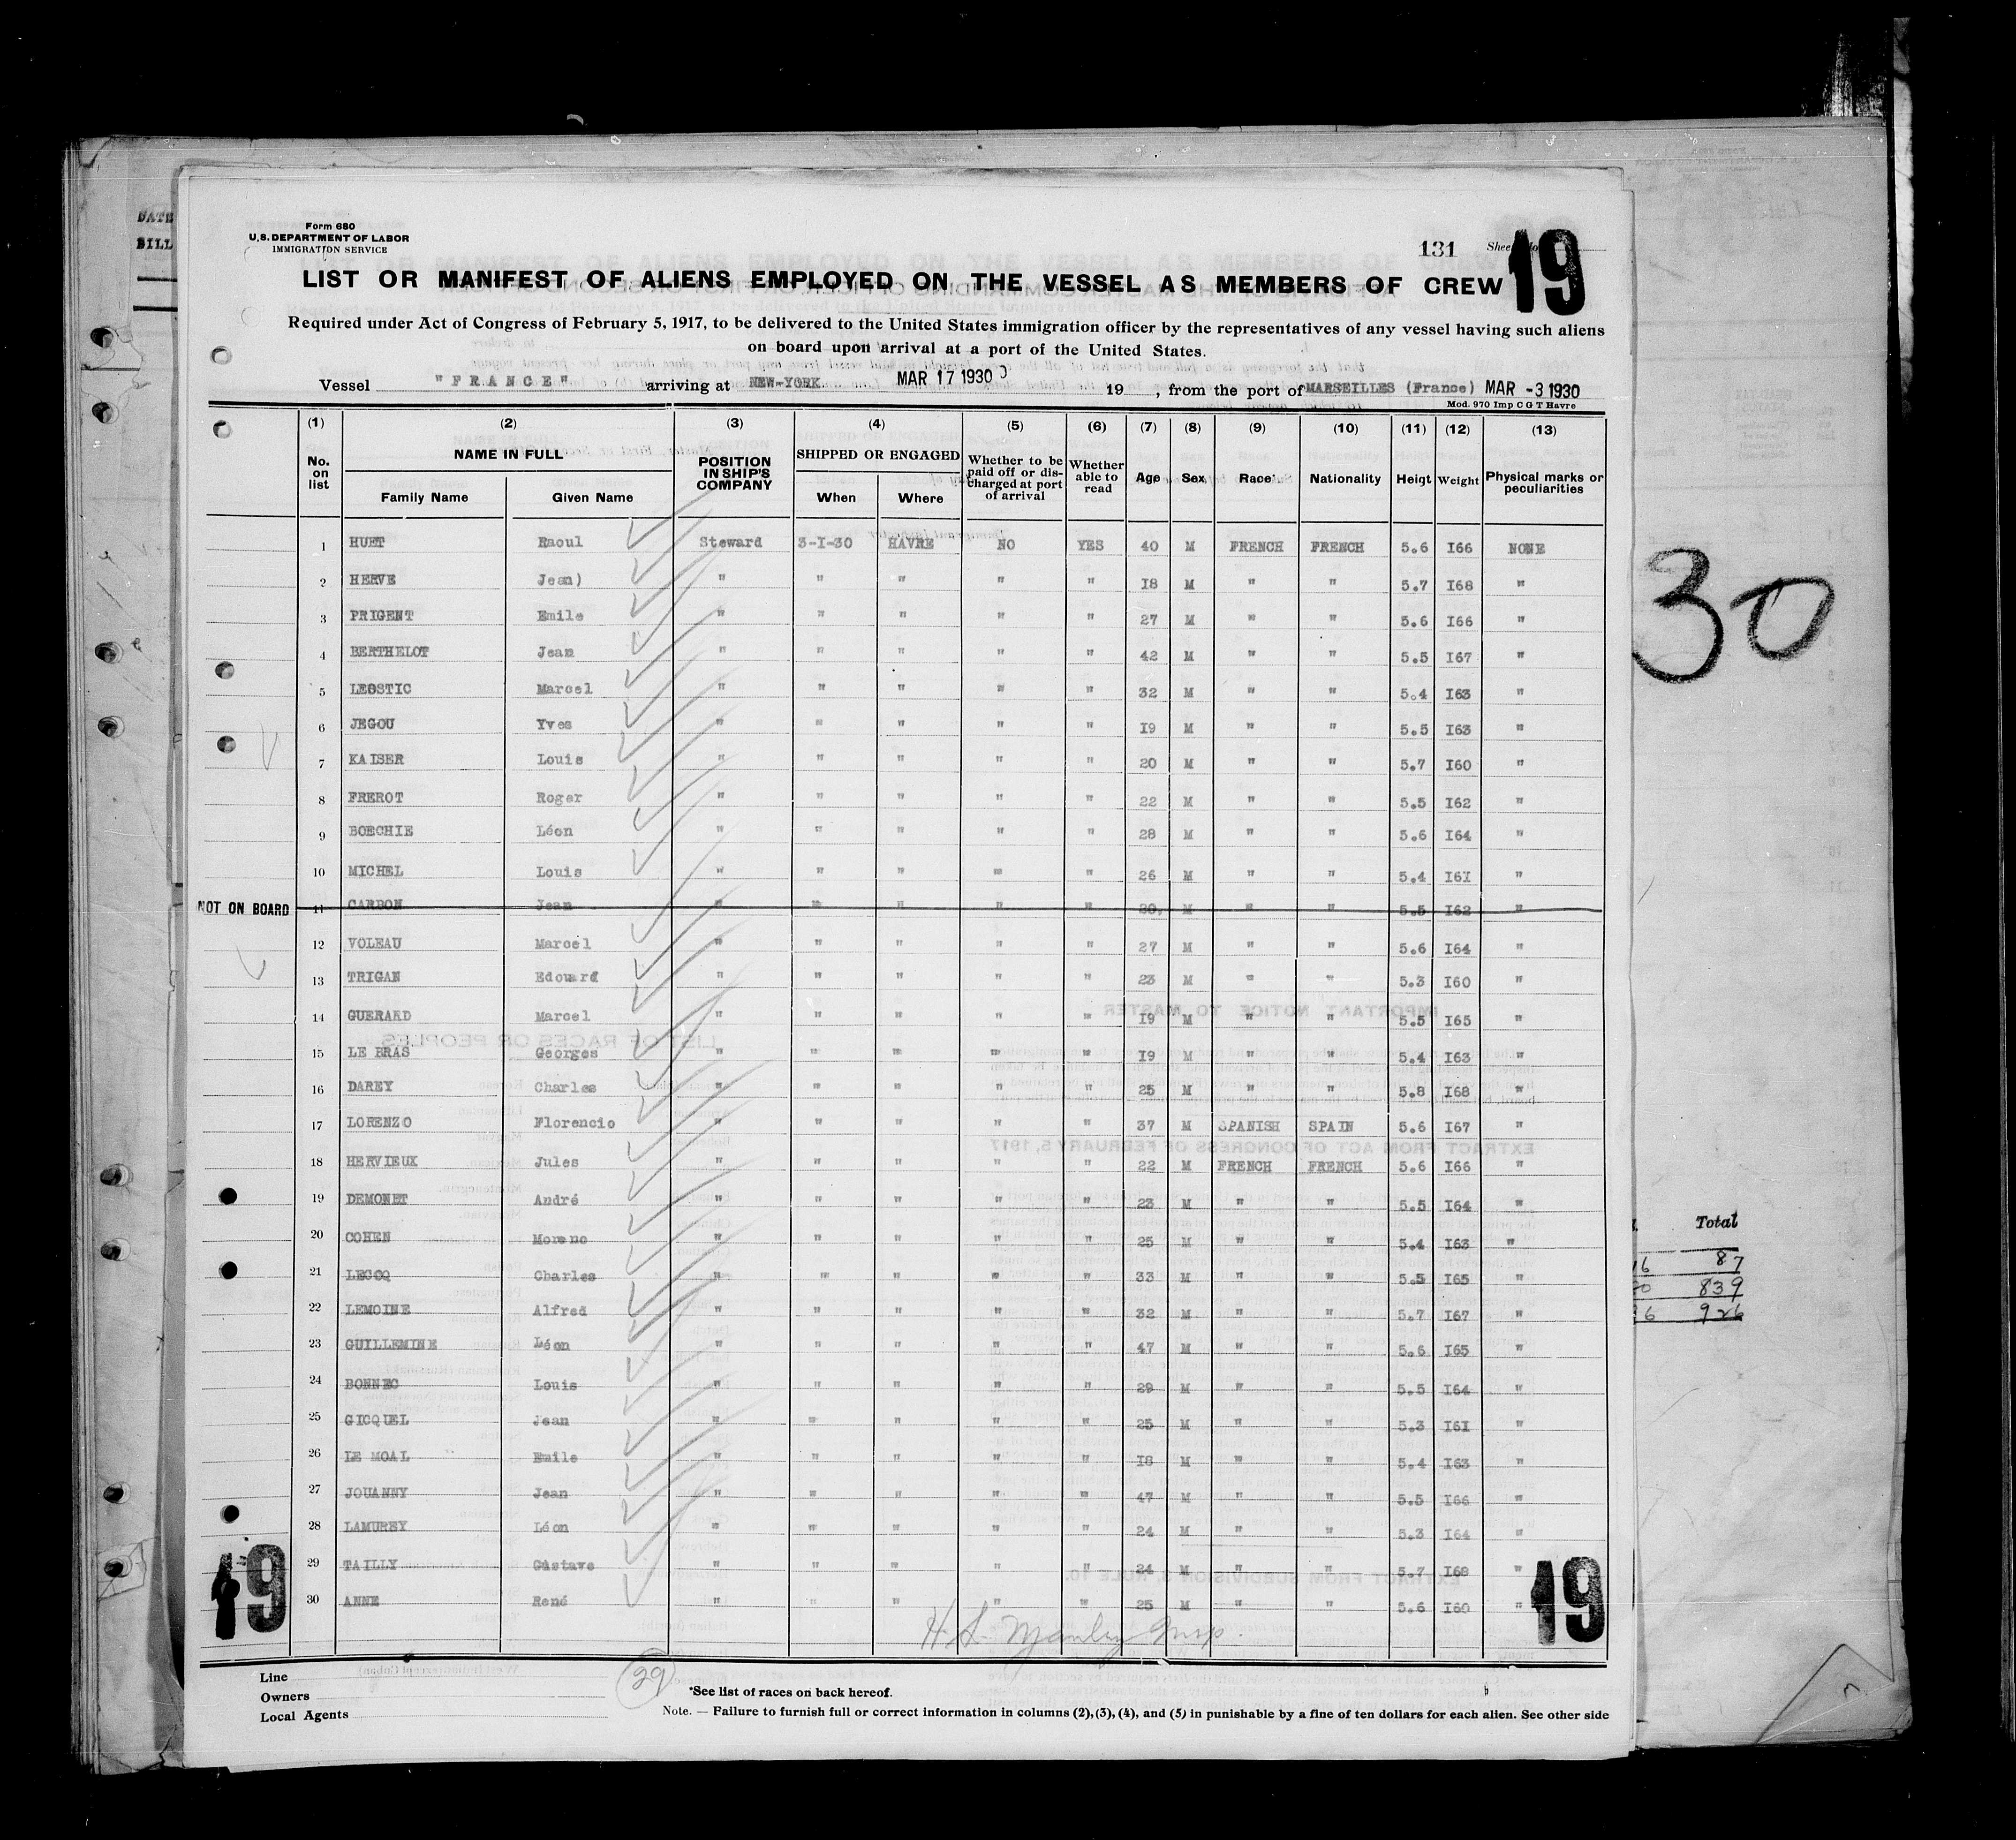 DATE
BILL
Form 680
U.S. DEPARTMENT OF LABOR
IMMIGRATION SERVICE
131 19
LIST OR MANIFEST OF ALIENS EMPLOYED ON THE VESSEL AS MEMBERS OF CREW
Required under Act of Congress of February 5, 1917, to be delivered to the United States immigration officer by the representatives of any vessel having such aliens
on board upon arrival at a port of the United States.
Vessel "FRANCE" arriving at NEW-YORK MAR 17 1930 19 , from the port of MARSEILLES (France) MAR -3 1930
Mod. 970 Imp C G T Havre
(1) (2) (3) (4) (5) (6) (7) (8) (9) (10) (11) (12) (13)
No. on list NAME IN FULL Family Name Given Name POSITION IN SHIP'S COMPANY SHIPPED OR ENGAGED When Where Whether to be paid off or discharged at port of arrival Whether able to read Age Sex Race Nationality Heigt Weight Physical marks or peculiarities
1 HUET Raoul Steward 3-I-30 HAVRE NO YES 40 M FRENCH FRENCH 5.6 I66 NONE
2 HERVE Jean) " " " " " I8 M " " 5.7 I68 "
3 PRIGENT Emile " " " " " 27 M " " 5.6 I66 "
4 BERTHELOT Jean " " " " " 42 M " " 5.5 I67 "
5 LEOSTIC Marcel " " " " " 32 M " " 5.4 I63 "
6 JEGOU Yves " " " " " I9 M " " 5.5 I63 "
7 KAISER Louis " " " " " 20 M " " 5.7 I60 "
8 FREROT Roger " " " " " 22 M " " 5.5 I62 "
9 BOECHIE Léon " " " " " 28 M " " 5.6 I64 "
10 MICHEL Louis " " " " " 26 M " " 5.4 I6I "
NOT ON BOARD 11 CARBON Jean " " " " " 20, M " " 5.5 I62 "
12 VOLEAU Marcel " " " " " 27 M " " 5.6 I64 "
13 TRIGAN Edouard " " " " " 23 M " " 5.3 I60 "
14 GUERARD Marcel " " " " " I9 M " " 5.5 I65 "
15 LE BRAS Georges " " " " " I9 M " " 5.4 I63 "
16 DAREY Charles " " " " " 25 M " " 5.8 I68 "
17 LORENZO Florencio " " " " " 37 M SPANISH SPAIN 5.6 I67 "
18 HERVIEUX Jules " " " " " 22 M FRENCH FRENCH 5.6 I66 "
19 DEMONET André " " " " " 23 M " " 5.5 I64 "
20 COHEN Moreno " " " " " 25 M " " 5.4 I63 "
21 LECOQ Charles " " " " " 33 M " " 5.5 I65 "
22 LEMOINE Alfred " " " " " 32 M " " 5.7 I67 "
23 GUILLEMINE Léon " " " " " 47 M " " 5.6 I65 "
24 BONNEC Louis " " " " " 29 M " " 5.5 I64 "
25 GICQUEL Jean " " " " " 25 M " " 5.3 I6I "
26 LE MOAL Emile " " " " " I8 M " " 5.4 I63 "
27 JOUANNY Jean " " " " " 47 M " " 5.5 I66 "
28 LAMUREY Léon " " " " " 24 M " " 5.3 I64 "
29 TAILLY Gustave " " " " " 24 M " " 5.7 I68 "
30 ANNE René " " " " " 25 M " " 5.6 I60 "
19 19
Line
Owners
Local Agents
29
*See list of races on back hereof.
Note. — Failure to furnish full or correct information in columns (2),(3), (4), and (5) in punishable by a fine of ten dollars for each alien. See other side
30
Total
87
839
926